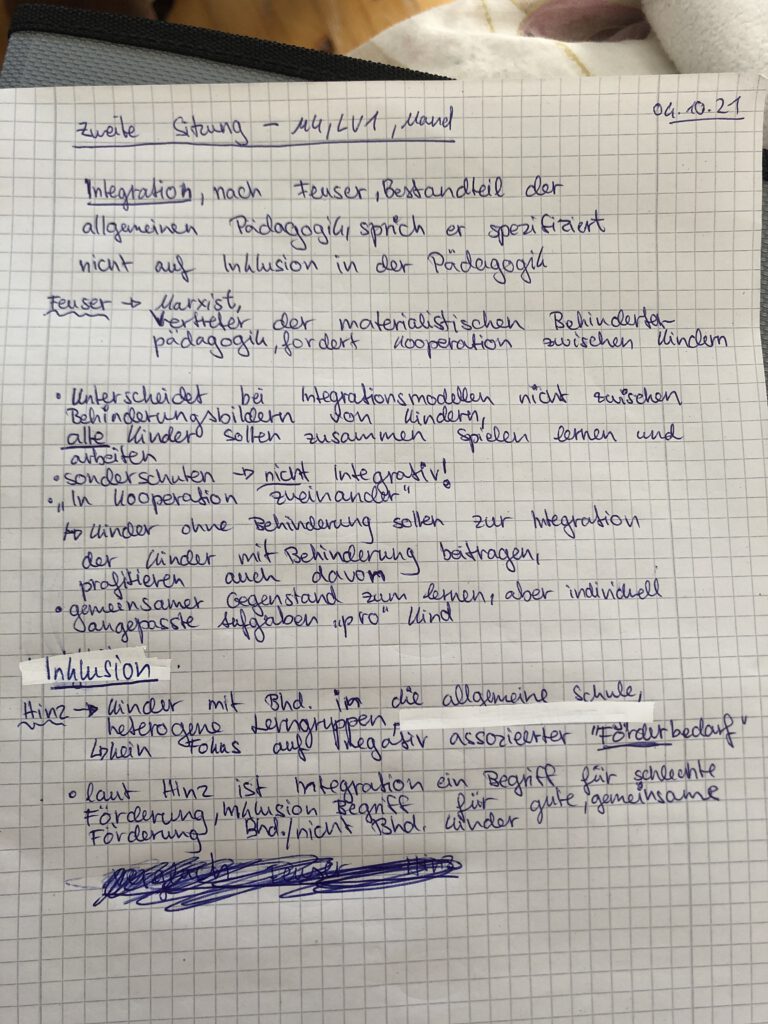 04.10.21
Zweite Sitzung – M4, LV1, Mand
Integration, nach Feuser, Bestandteil der
allgemeinen Pädagogik, sprich er spezifiziert
nicht auf Inklusion in der Pädagogik
Feuser → Marxist,
Vertreter der materialistischen Behinderten-
pädagogik, fordert Kooperation zwischen Kindern
• Unterscheidet bei Integrationsmodellen nicht zwischen
Behinderungsbildern von Kindern,
alle Kinder sollen zusammen spielen lernen und
arbeiten
• Sonderschulen → nicht Integrativ!
• „In Kooperation zueinander"
↳ Kinder ohne Behinderung sollen zur Integration
der Kinder mit Behinderung beitragen,
profitieren auch davon
• gemeinsamer Gegenstand zum lernen, aber individuell
angepasste Aufgaben „pro" Kind
Inklusion
Hinz → Kinder mit Bhd. in die allgemeine Schule,
heterogene Lerngruppen,
↳ kein Fokus auf negativ assoziierter "Förderbedarf"
• laut Hinz ist Integration ein Begriff für schlechte
Förderung, Inklusion Begriff für gute, gemeinsame
Förderung Bhd./nicht Bhd. Kinder